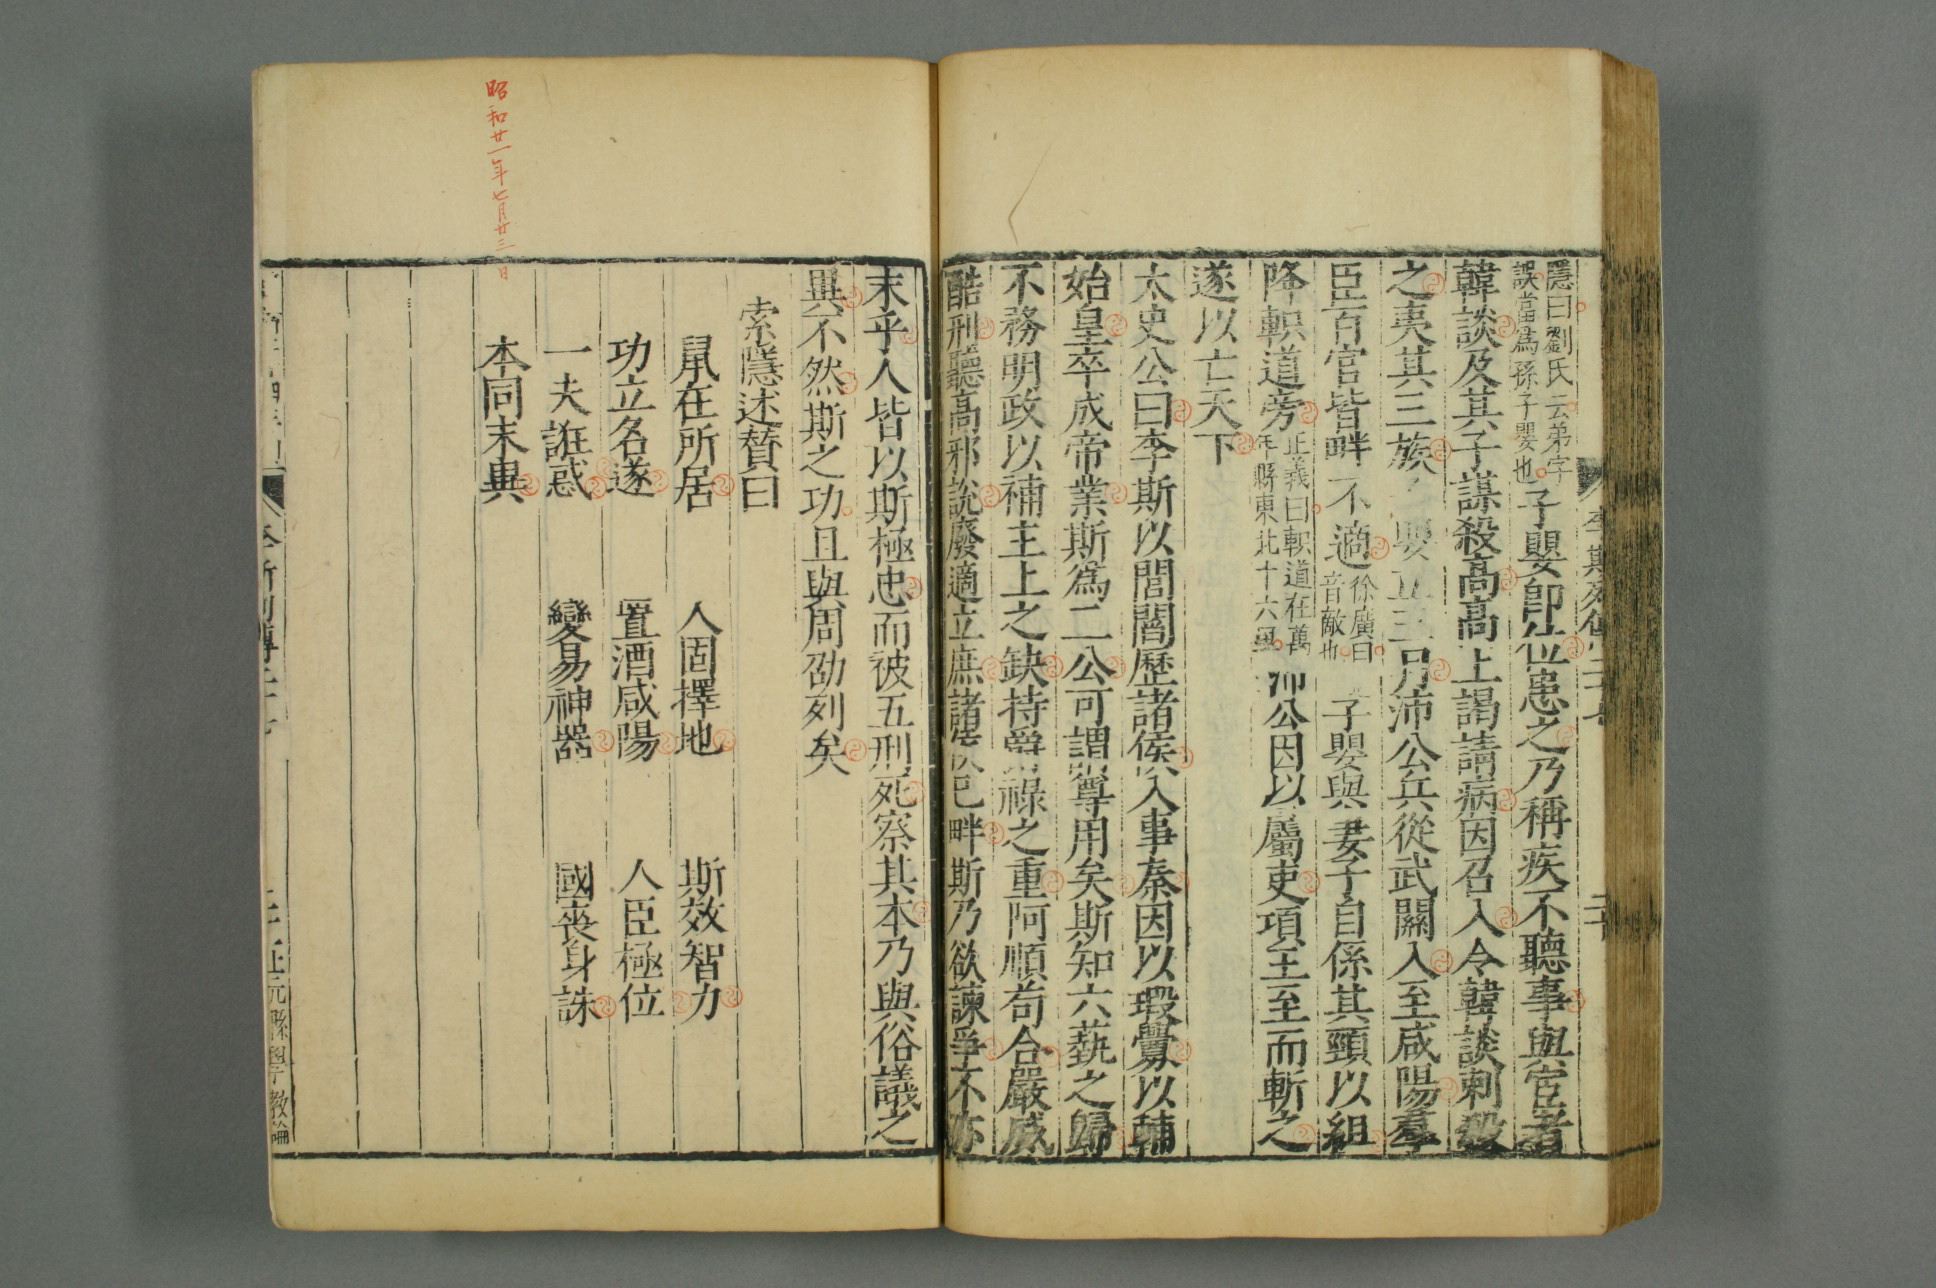 隱曰劉氏云弟字
誤當爲孫子嬰也
子嬰卽位患之乃稱疾不聽事與宦者
韓談及其子謀殺高高上謁請病因召入令韓談刺殺
之夷其三族子嬰立三月沛公兵從武關入至咸陽羣
臣百官皆畔不適
徐廣曰
音敵也
子嬰與妻子自係其頸以組
降軹道旁
正義曰軹道在萬
年縣東北十六里
沛公因以屬吏項王至而斬之
遂以亡天下
太史公曰李斯以閭閻歷諸侯入事秦因以瑕釁以輔
始皇卒成帝業斯爲三公可謂尊用矣斯知六藝之歸
不務明政以補主上之缺持爵祿之重阿順苟合嚴威
酷刑聽高邪說廢適立庶諸侯已畔斯乃欲諫爭不亦
李斯列傳二十七
二十
末乎人皆以斯極忠而被五刑死察其本乃與俗議之
異不然斯之功且與周劭列矣
索隱述贊曰
鼠在所居 人固擇地 斯效智力
功立名遂 置酒咸陽 人臣極位
一夫誑惑 變易神器 國喪身誅
本同末異
昭和廿一年七月廿三日
上元縣學教諭